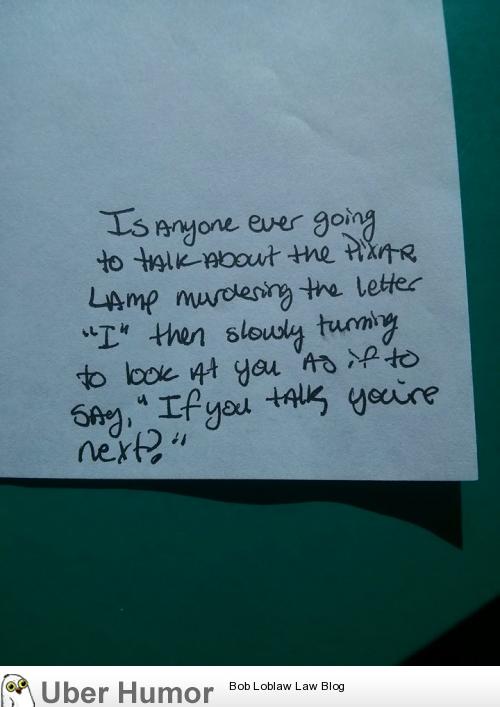 Is anyone ever going
to talk about the Pixar
Lamp murdering the letter
"I" then slowly turning
to look at you as if to
say, "If you talk, you're
next?"
Uber Humor
Bob Loblaw Law Blog